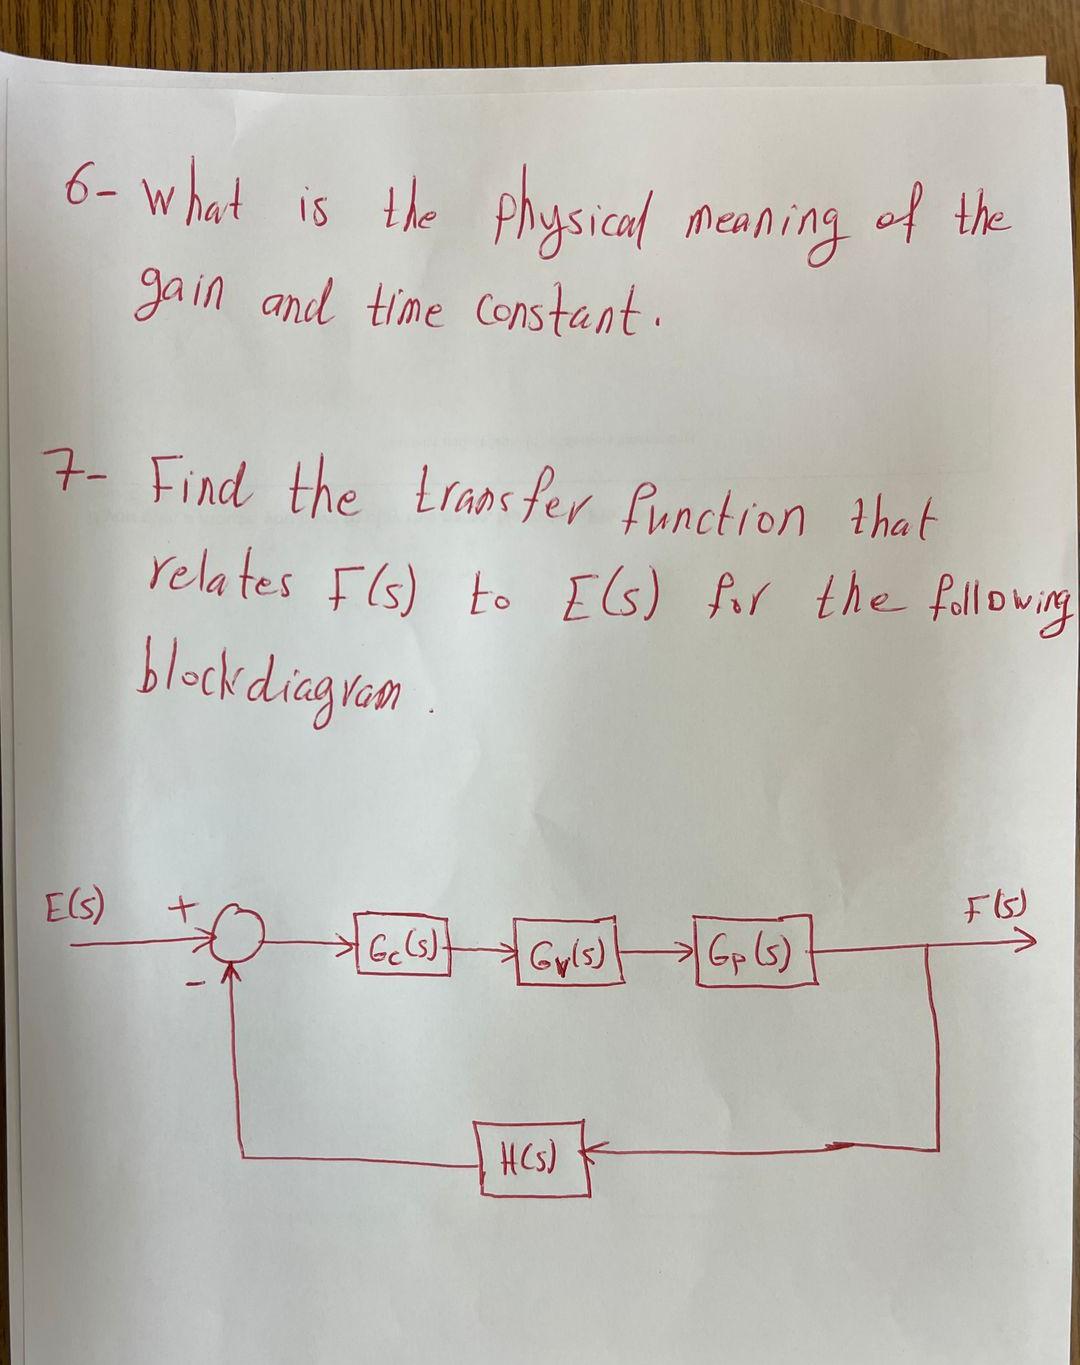 6- What is the physical meaning of the
gain and time constant.
7- Find the transfer function that
relates F(s) to E(s) for the following
blockdiagram.
E(s) + F(s)
Gc(s) Gv(s) Gp(s)
-
H(s)